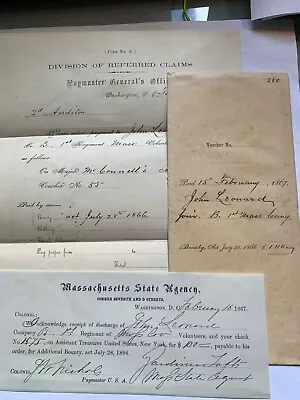 (Form No. 6.)
DIVISION OF REFERRED CLAIMS.
Paymaster General's Offi
Washington, D. C.
2d Auditor
John L
Co B. 1st Regiment Mass
as follows
On Major Mc Connell's
Voucher No 55
Paid by
act July 28th 1866
Pay proper from
Total
Voucher No.
Paid 15th February 1867.
John Leonard
priv. B. 1st Mass Cavy
Bounty, Act July 28, 1866. $100
Massachusetts State Agency,
CORNER SEVENTH AND D STREETS,
WASHINGTON, D. C. February 16 1867
COLONEL:
I acknowledge receipt of discharge of John Leonard
Company B. 1st Regiment of Mass Cav Volunteers, and your check
No. on Assistant Treasurer United States, New York, for $100 payable to his
order, for Additional Bounty, act July 28, 1866.
COLONEL Gardiner Tufts
J W Nichols Mass State Agent
Paymaster U. S. A.